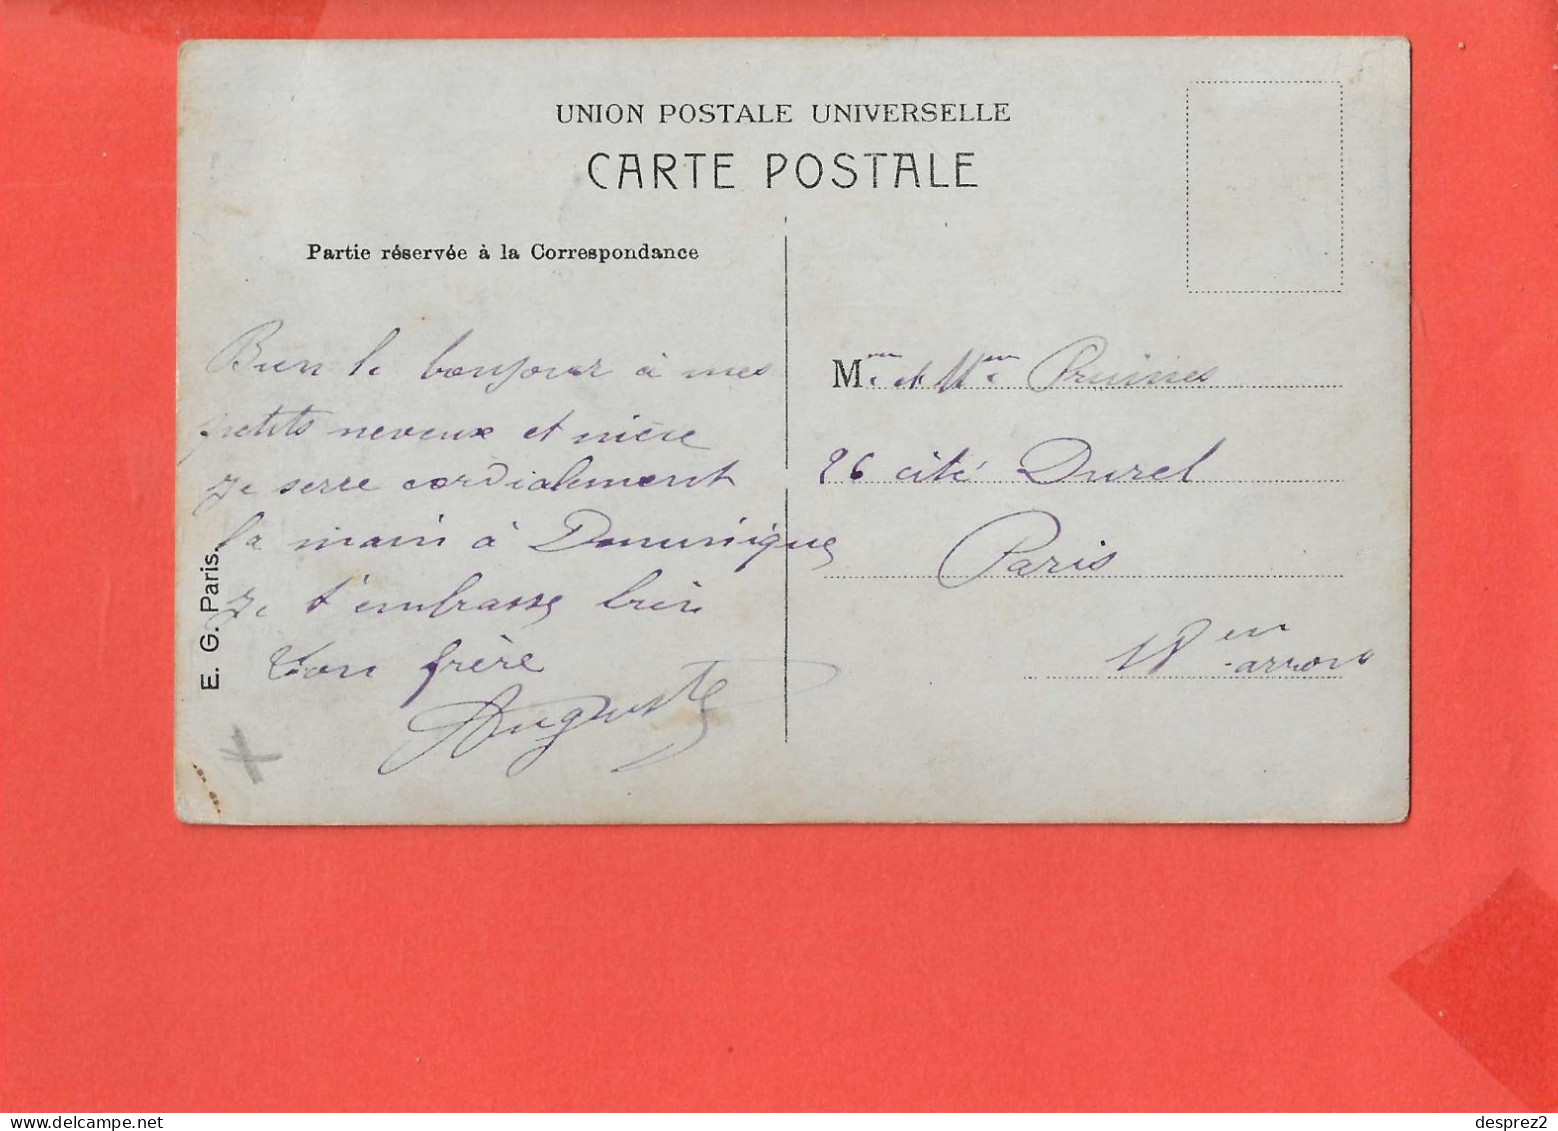 UNION POSTALE UNIVERSELLE
CARTE POSTALE
Partie réservée à la Correspondance
Bien le bonjour à mes
petits neveux et nièce
je serre cordialement
la main à Dominique
Je t'embrasse bien
Ton frère
Auguste
E. G. Paris.
M. et Mme Pruines
26 cité Durel
Paris
18 em arron
desprez2